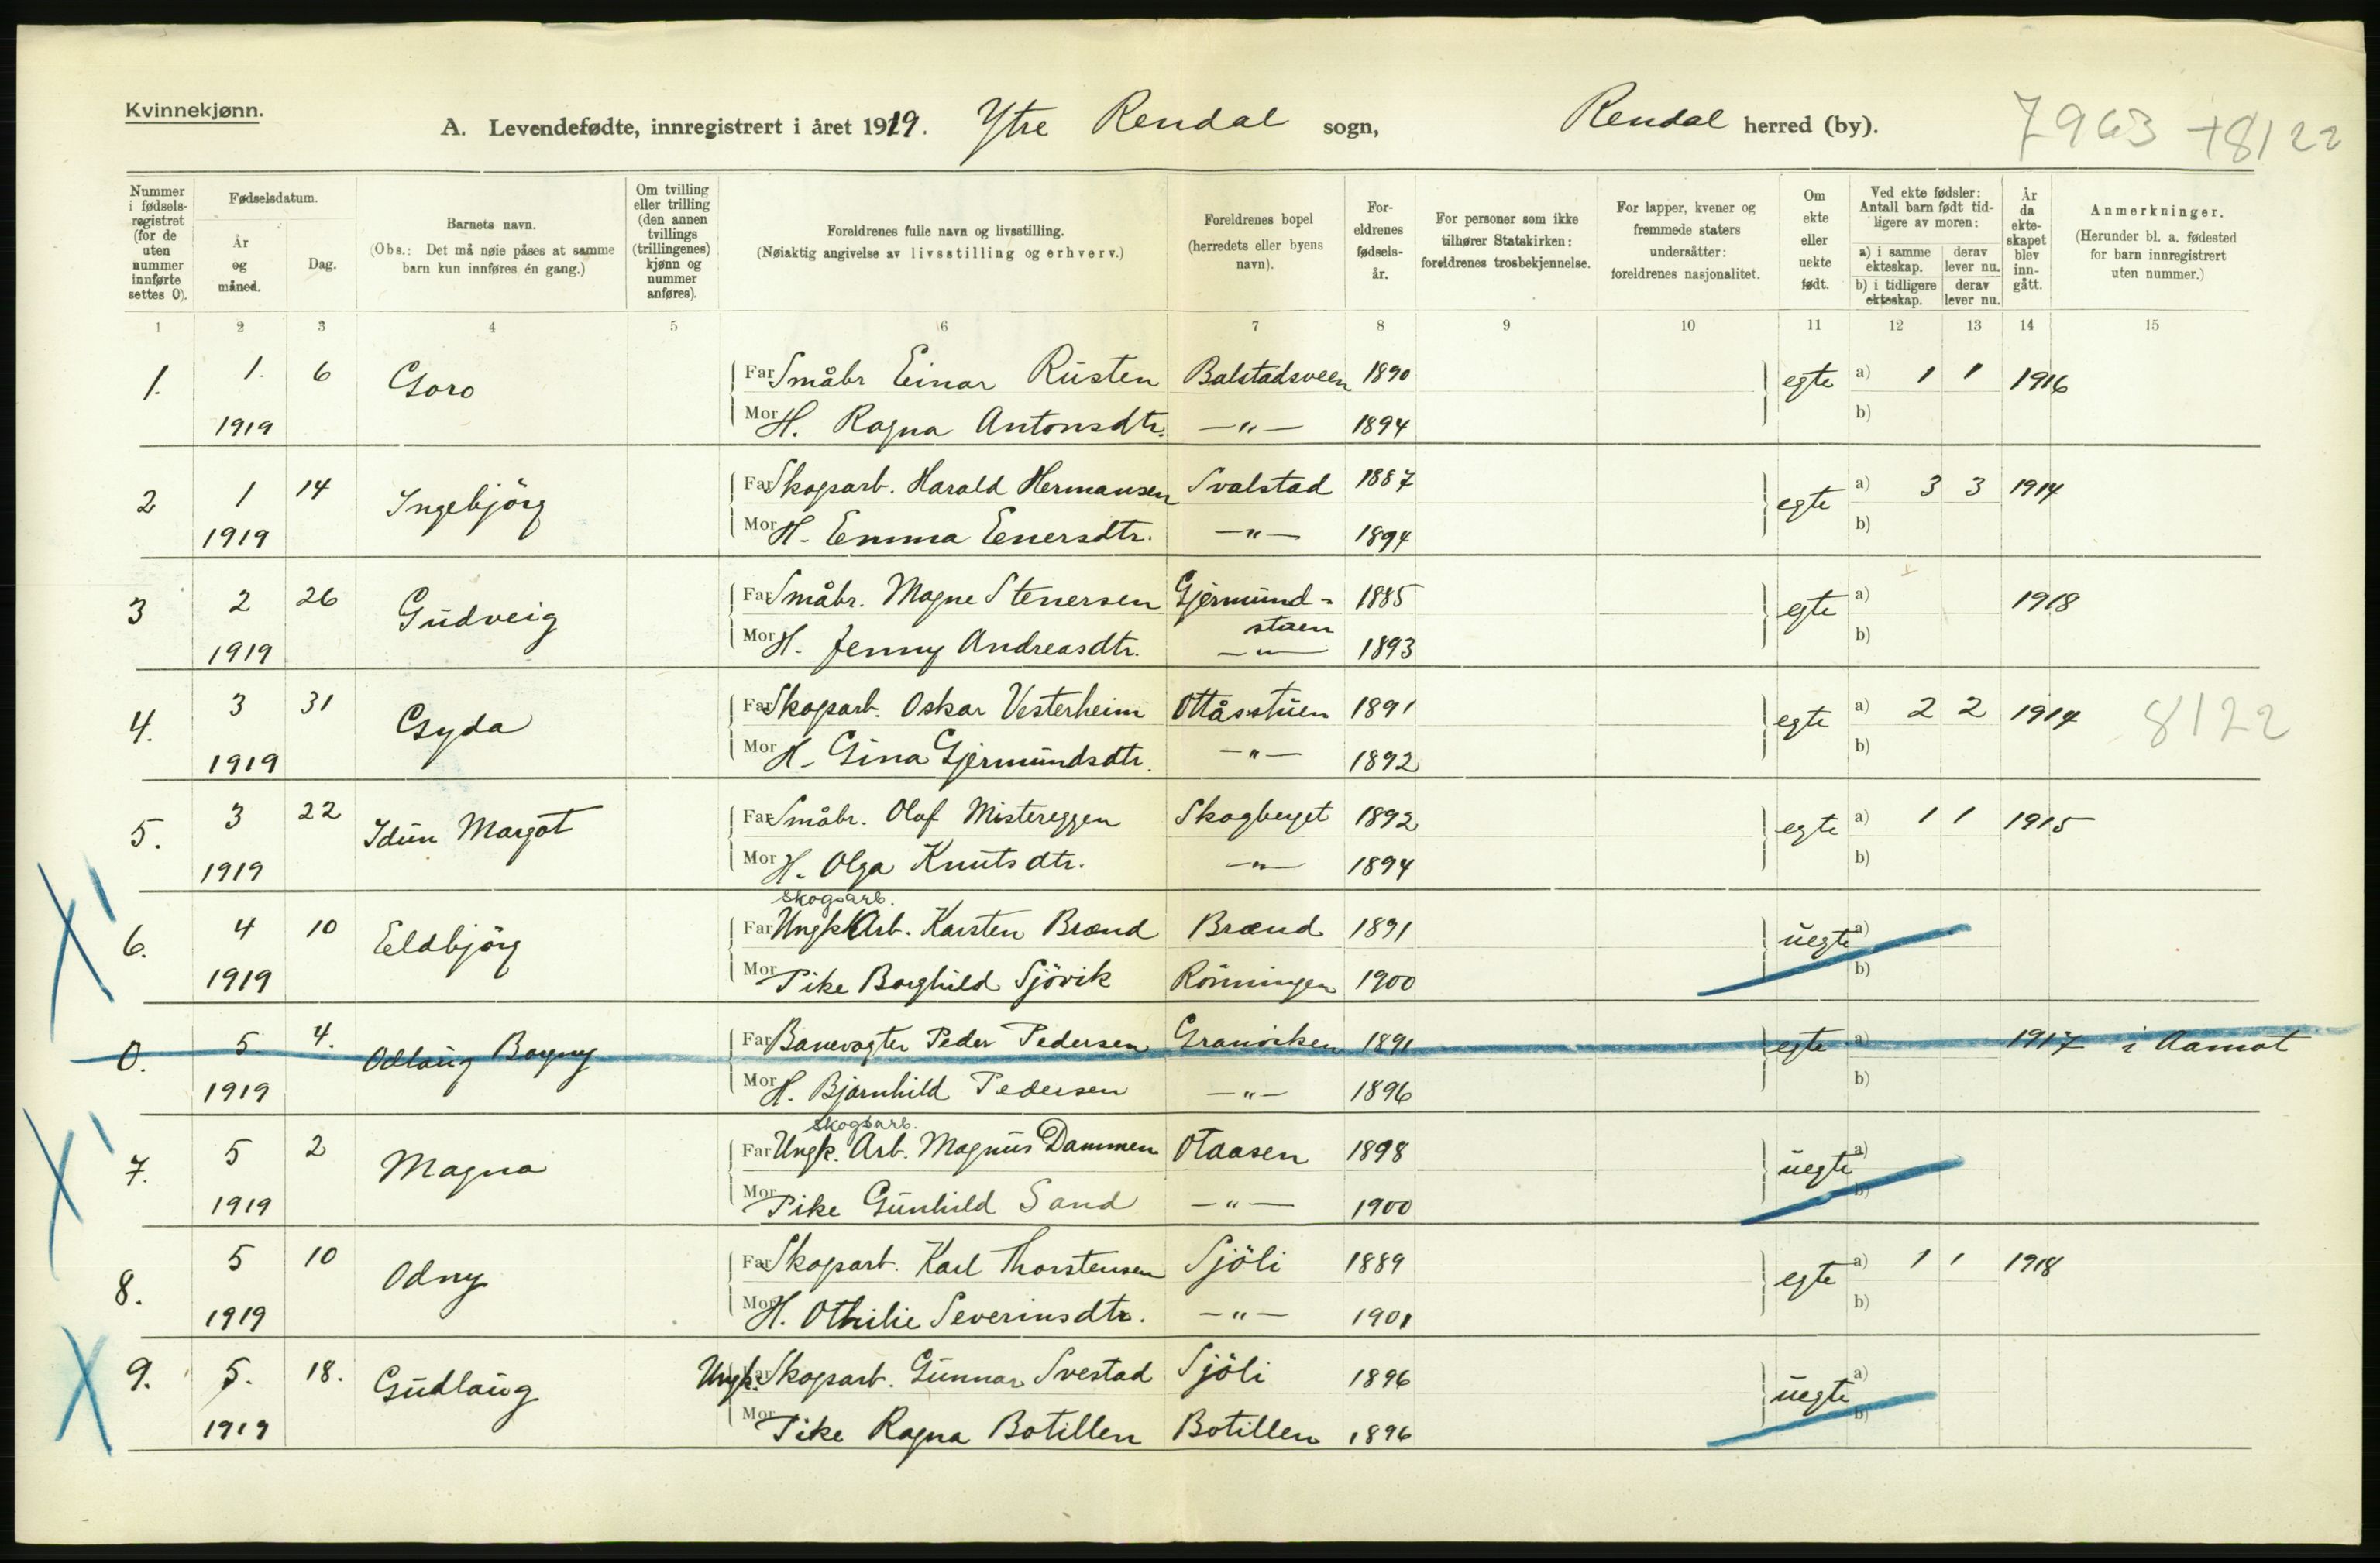 Kvinnekjønn.
A. Levendefødte, innregistrert i året 1919. Ytre Rendal sogn, Rendal herred (by). 7963 +8122
Nummer i fødselsregistret (for de uten nummer innførte settes 0).
Fødselsdatum.
År og måned.
Dag.
Barnets navn.
(Obs.: Det må nøie påses at samme barn kun innføres én gang.)
Om tvilling eller trilling (den annen tvillings (trillingenes) kjønn og nummer anføres).
Foreldrenes fulle navn og livsstilling.
(Nøiaktig angivelse av livsstilling og erhverv.)
Foreldrenes bopel (herredets eller byens navn).
Foreldrenes fødselsår.
For personer som ikke tilhører Statskirken: foreldrenes trosbekjennelse.
For lapper, kvener og fremmede staters undersåtter: foreldrenes nasjonalitet.
Om ekte eller uekte født.
Ved ekte fødsler: Antall barn født tidligere av moren:
a) i samme ekteskap.
derav lever nu.
b) i tidligere ekteskap.
derav lever nu.
År da ekteskapet blev inngått.
Anmerkninger.
(Herunder bl. a. fødested for barn innregistrert uten nummer.)
1 2 3 4 5 6 7 8 9 10 11 12 13 14 15
1. 1. 6 Goro Far Småbr Einar Rusten Balstadsveen 1890 egte a) 1 1 1916
1919 Mor H. Ragna Antonsdtr. —"— 1894 b)
2 1 14 Ingebjörg Far Skogsarb. Harald Hermansen Svalstad 1887 egte a) 3 3 1914
1919 Mor H. Emma Enersdtr. —"— 1894 b)
3 2 26 Gudveig Far Småbr. Magne Stenersen Gjermund= 1885 egte a) 1918
stuen
1919 Mor H. Jenny Andreasdtr. —"— 1893 b)
4. 3 31 Gyda Far Skogsarb. Oskar Vesterheim Ottåsstuen 1891 egte a) 2 2 1914 8122
1919 Mor H. Gina Gjermundsdtr. —"— 1892 b)
5. 3 22 Idun Margot Far Småbr. Olaf Mistereggen Skogberget 1892 egte a) 1 1 1915
1919 Mor H. Olga Knutsdtr. —"— 1894 b)
Skogsarb.
6. 4 10 Eldbjörg Far Ungk. Arb. Karsten Brænd Brænd 1891 uegte a)
1919 Mor Pike Borghild Sjövik Rönningen 1900 b)
0. 5 4. Odlaug Bagny Far Banevogter Peder Pedersen Granviken 1891 egte a) 1917 i Aamot
1919 Mor H. Bjarnhild Pedersen —"— 1896 b)
Skogsarb.
7. 5 2 Magna Far Ungk. Arb. Magnus Dammen Otaasen 1898 uegte a)
1919 Mor Pike Gunhild Sand —"— 1900 b)
8. 5 10 Odny Far Skogsarb. Karl Thorstensen Sjöli 1889 egte a) 1 1 1918
1919 Mor H. Othilie Severinsdtr. —"— 1901 b)
9. 5. 18. Gudlaug Ungk. Skogsarb. Gunnar Svestad Sjöli 1896 uegte a)
1919 Mor Pike Ragna Botillen Botillen 1896 b)